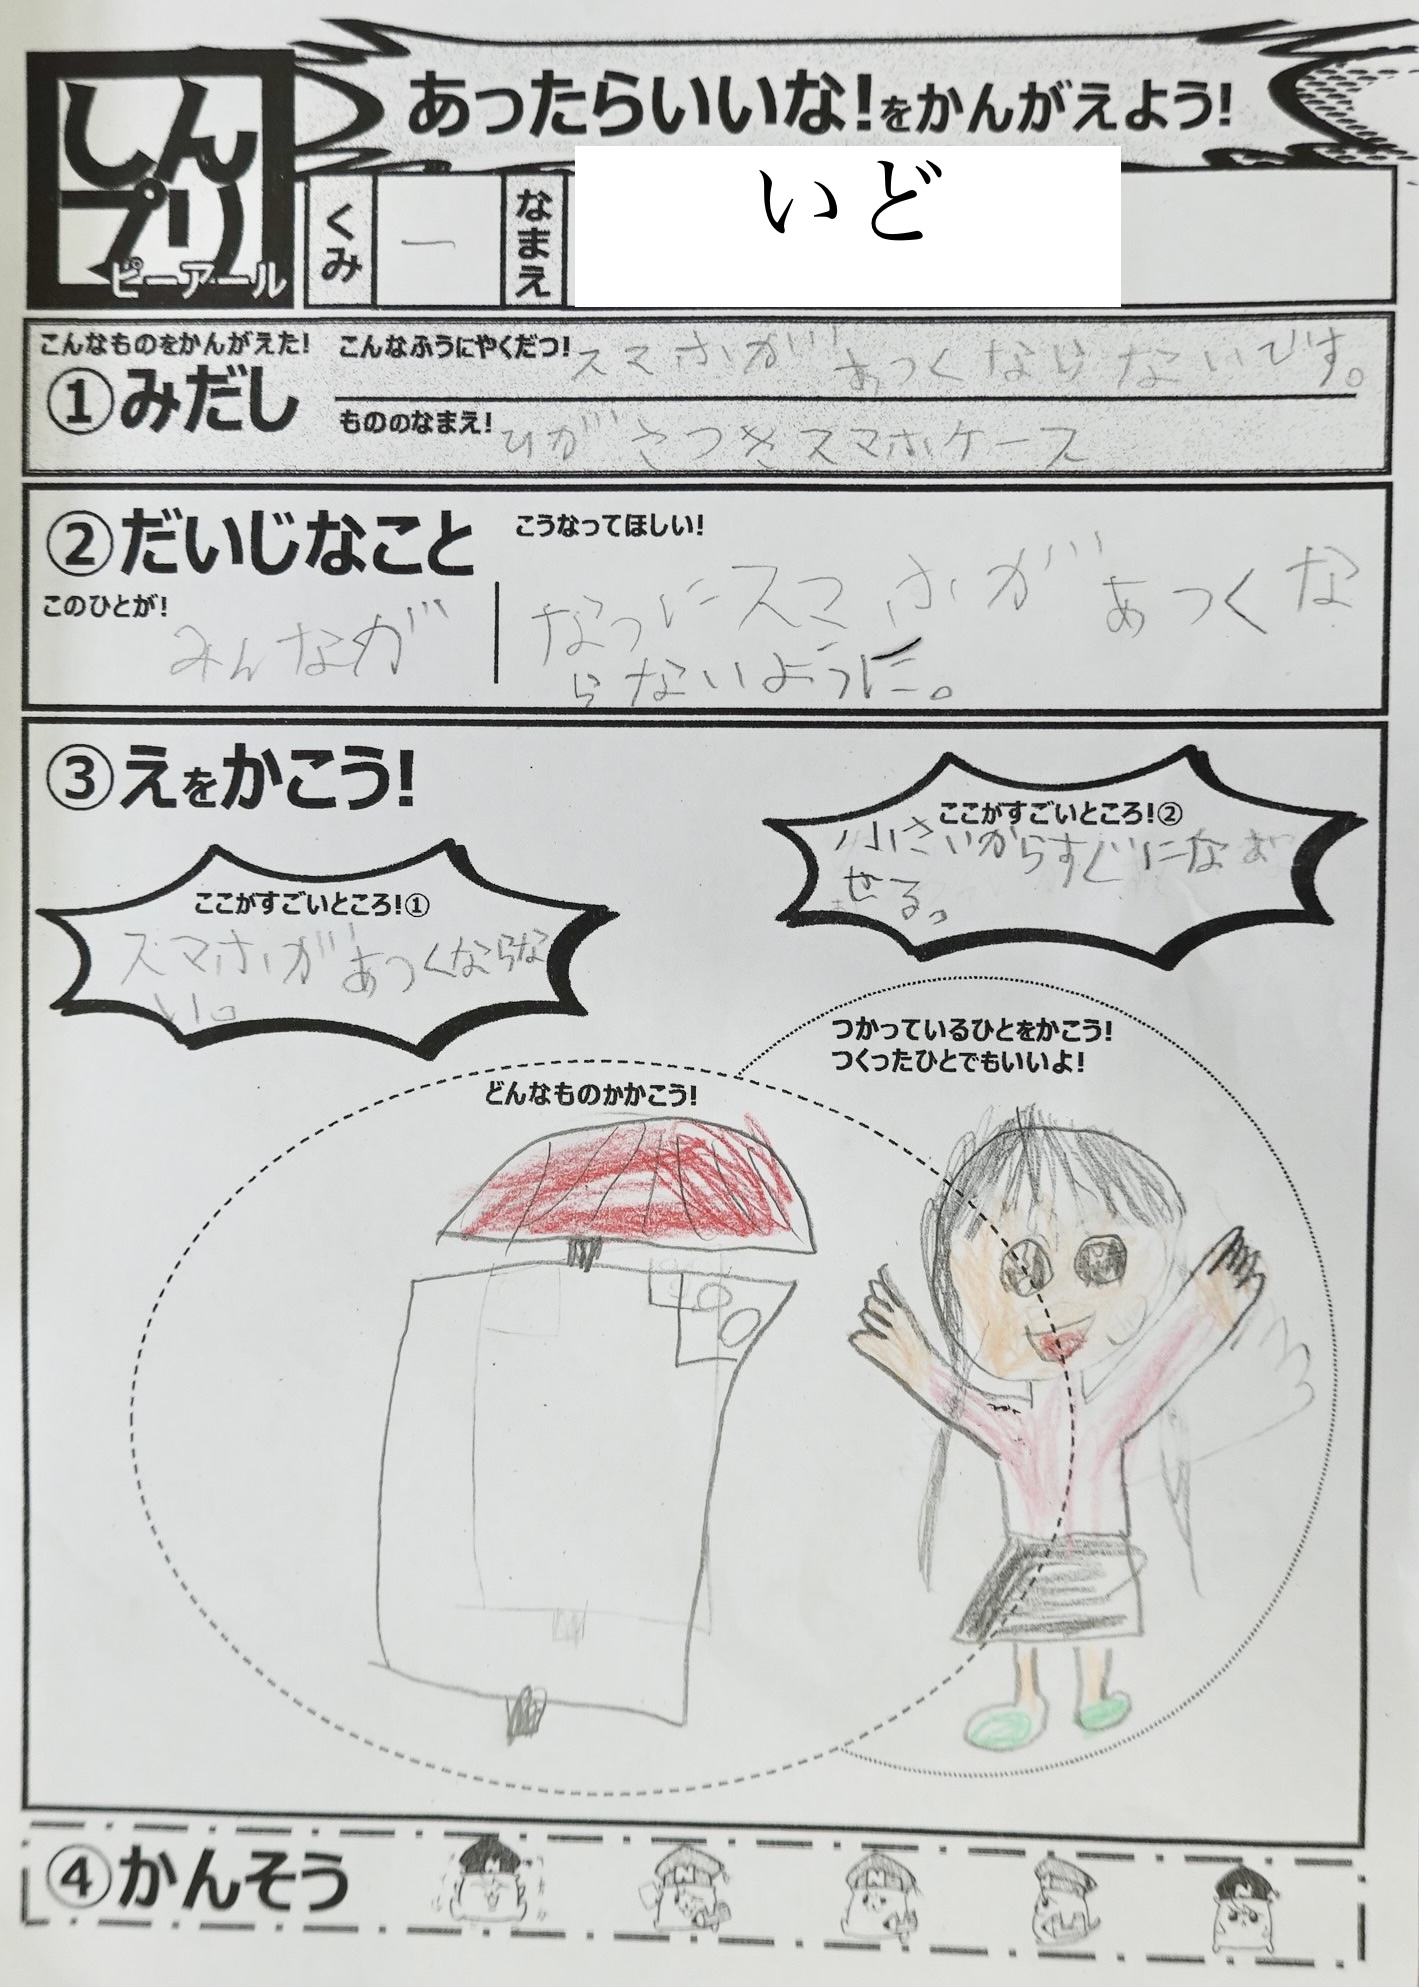 しんプリ
ピーアール
あったらいいな!をかんがえよう!
くみ
一
なまえ
いど
こんなものをかんがえた!
①みだし
こんなふうにやくだつ!
スマホがあつくならないです。
もののなまえ!
ひがさつきスマホケース
②だいじなこと
このひとが!
みんなが
こうなってほしい!
なつにスマホがあつくな
らないように。
③えをかこう!
ここがすごいところ!①
スマホがあつくならな
い。
ここがすごいところ!②
小さいからすぐになお
せる。
どんなものかかこう!
つかっているひとをかこう!
つくったひとでもいいよ!
④かんそう
N
N
N
N
N